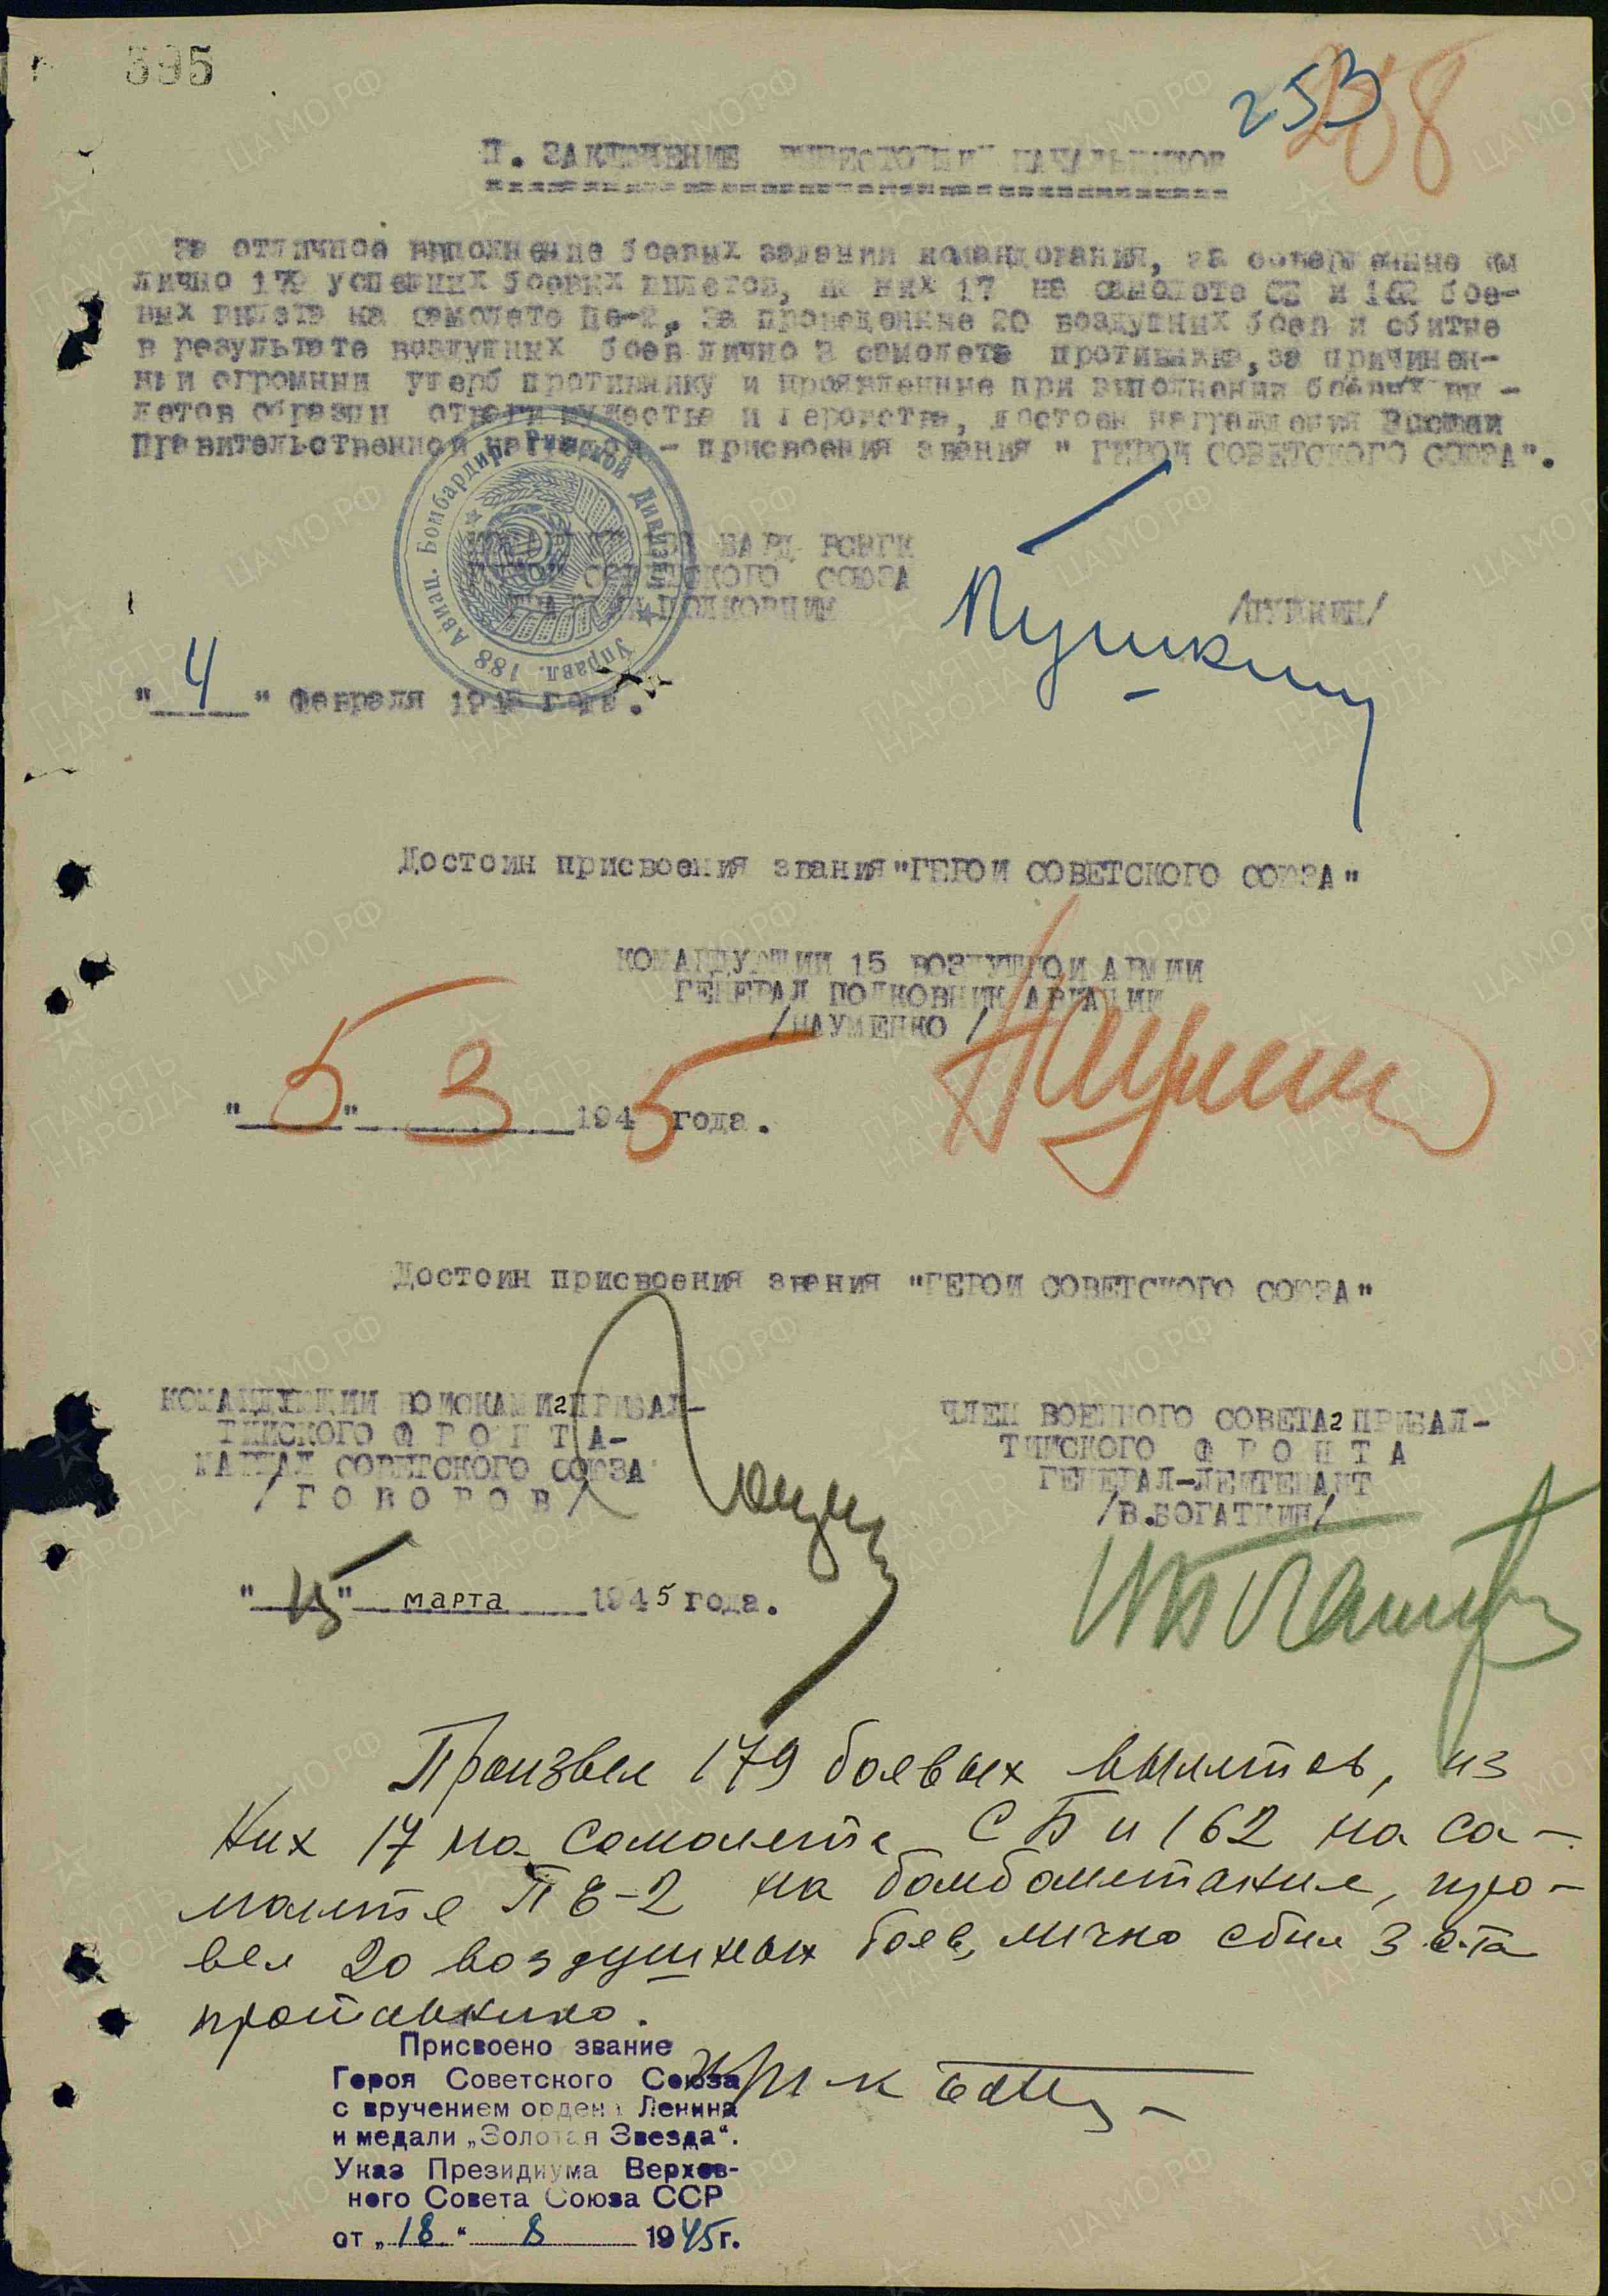 395
253
268
П. ЗАКЛЮЧЕНИЕ ВЫШЕСТОЯЩИХ НАЧАЛЬНИКОВ
За отличное выполнение боевых задании командования, за совершенные им
лично 179 успешных боевых вылетов, из них 17 на самолете СБ и 162 бое-
вых вылета на самолете Пе-2, за проведенные 20 воздушных боев и сбитые
в результате воздушных боев лично 3 самолета противника, за причинен-
ныи огромныи ущерб противнику и проявленные при выполнении боевых вы -
летов образцы отваги мужества и героиства, достоен награждения Высшеи
Правительственной наградой - присвоения звания " ГЕРОИ СОВЕТСКОГО СОЮЗА".
Управл. 188 Авиац. Бомбардировочной Дивизии
БАД РВГК
СОВЕТСКОГО СОЮЗА
ПОЛКОВНИК
/ПУШКИН/
Пушкин
" 4 " февраля 1945 года.
Достоин присвоения звания "ГЕРОИ СОВЕТСКОГО СОЮЗА"
КОМАНДУЮЩИИ 15 ВОЗДУШНОИ АРМИИ
ГЕНЕРАЛ ПОЛКОВНИК АВИАЦИИ
/НАУМЕНКО /
" 5 " 3 1945 года.
Достоин присвоения звания "ГЕРОИ СОВЕТСКОГО СОЮЗА"
КОМАНДУЮЩИИ ВОИСКАМИ 2 ПРИБАЛ-
ТИИСКОГО Ф Р О Н Т А-
МАРШАЛ СОВЕТСКОГО СОЮЗА
/ Г О В О Р О В /
ЧЛЕН ВОЕННОГО СОВЕТА 2 ПРИБАЛ-
ТИИСКОГО Ф Р О Н Т А
ГЕНЕРАЛ-ЛЕИТЕНАНТ
/В.БОГАТКИН/
" 15 " марта 1945 года.
Произвел 179 боевых вылетов, из
них 17 на самолете СБ и 162 на са-
молете ПЕ-2 на бомбометание, про-
вел 20 воздушных боев, лично сбил 3 с-та
противника.
Присвоено звание
Героя Советского Союза
с вручением ордена Ленина
и медали „Золотая Звезда“.
Указ Президиума Верхов-
ного Совета Союза ССР
от „18“ 8 1945г.